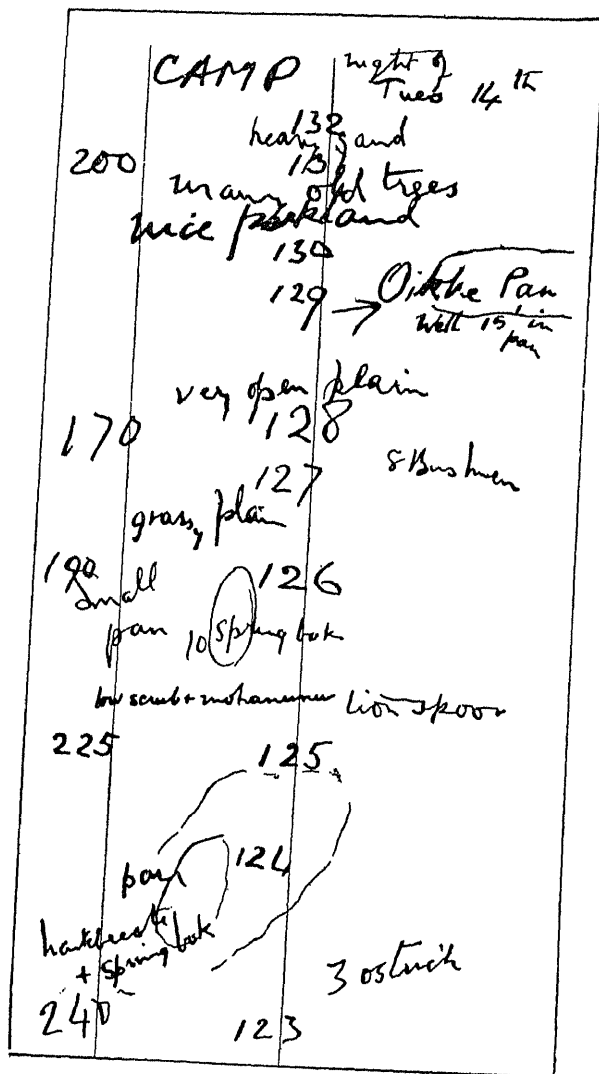 CAMP night of
Tues 14th
132
heavy sand
200 131
many old trees
nice parkland
130
129 → Oikhe Pan
Well 15' in
pan
very open plain
170 128
127 8 Bushmen
grassy plain
190 126
small
pan 10 Springbok
low scrub + Lion spoor
225 125
124
pan
hartebeeste
+ Springbok
3 ostrich
240 123